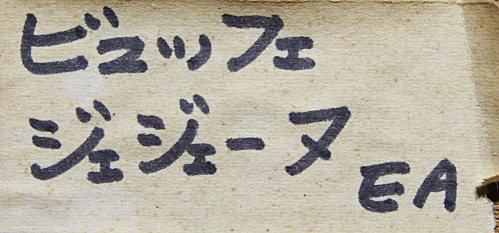 ビュッフェ
ジェジェーヌ
EA